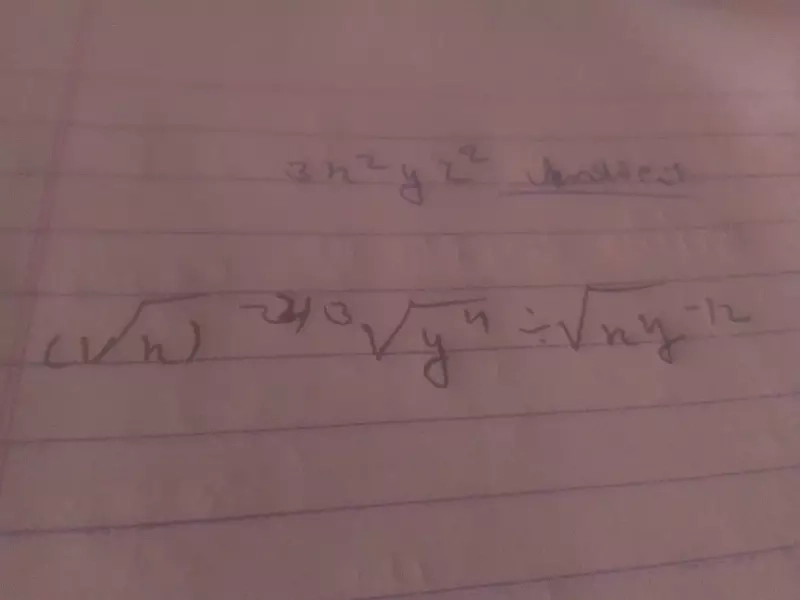 3x²yz²
(√x)⁻²ᐟ³ √y⁴ ÷ √xy⁻¹²